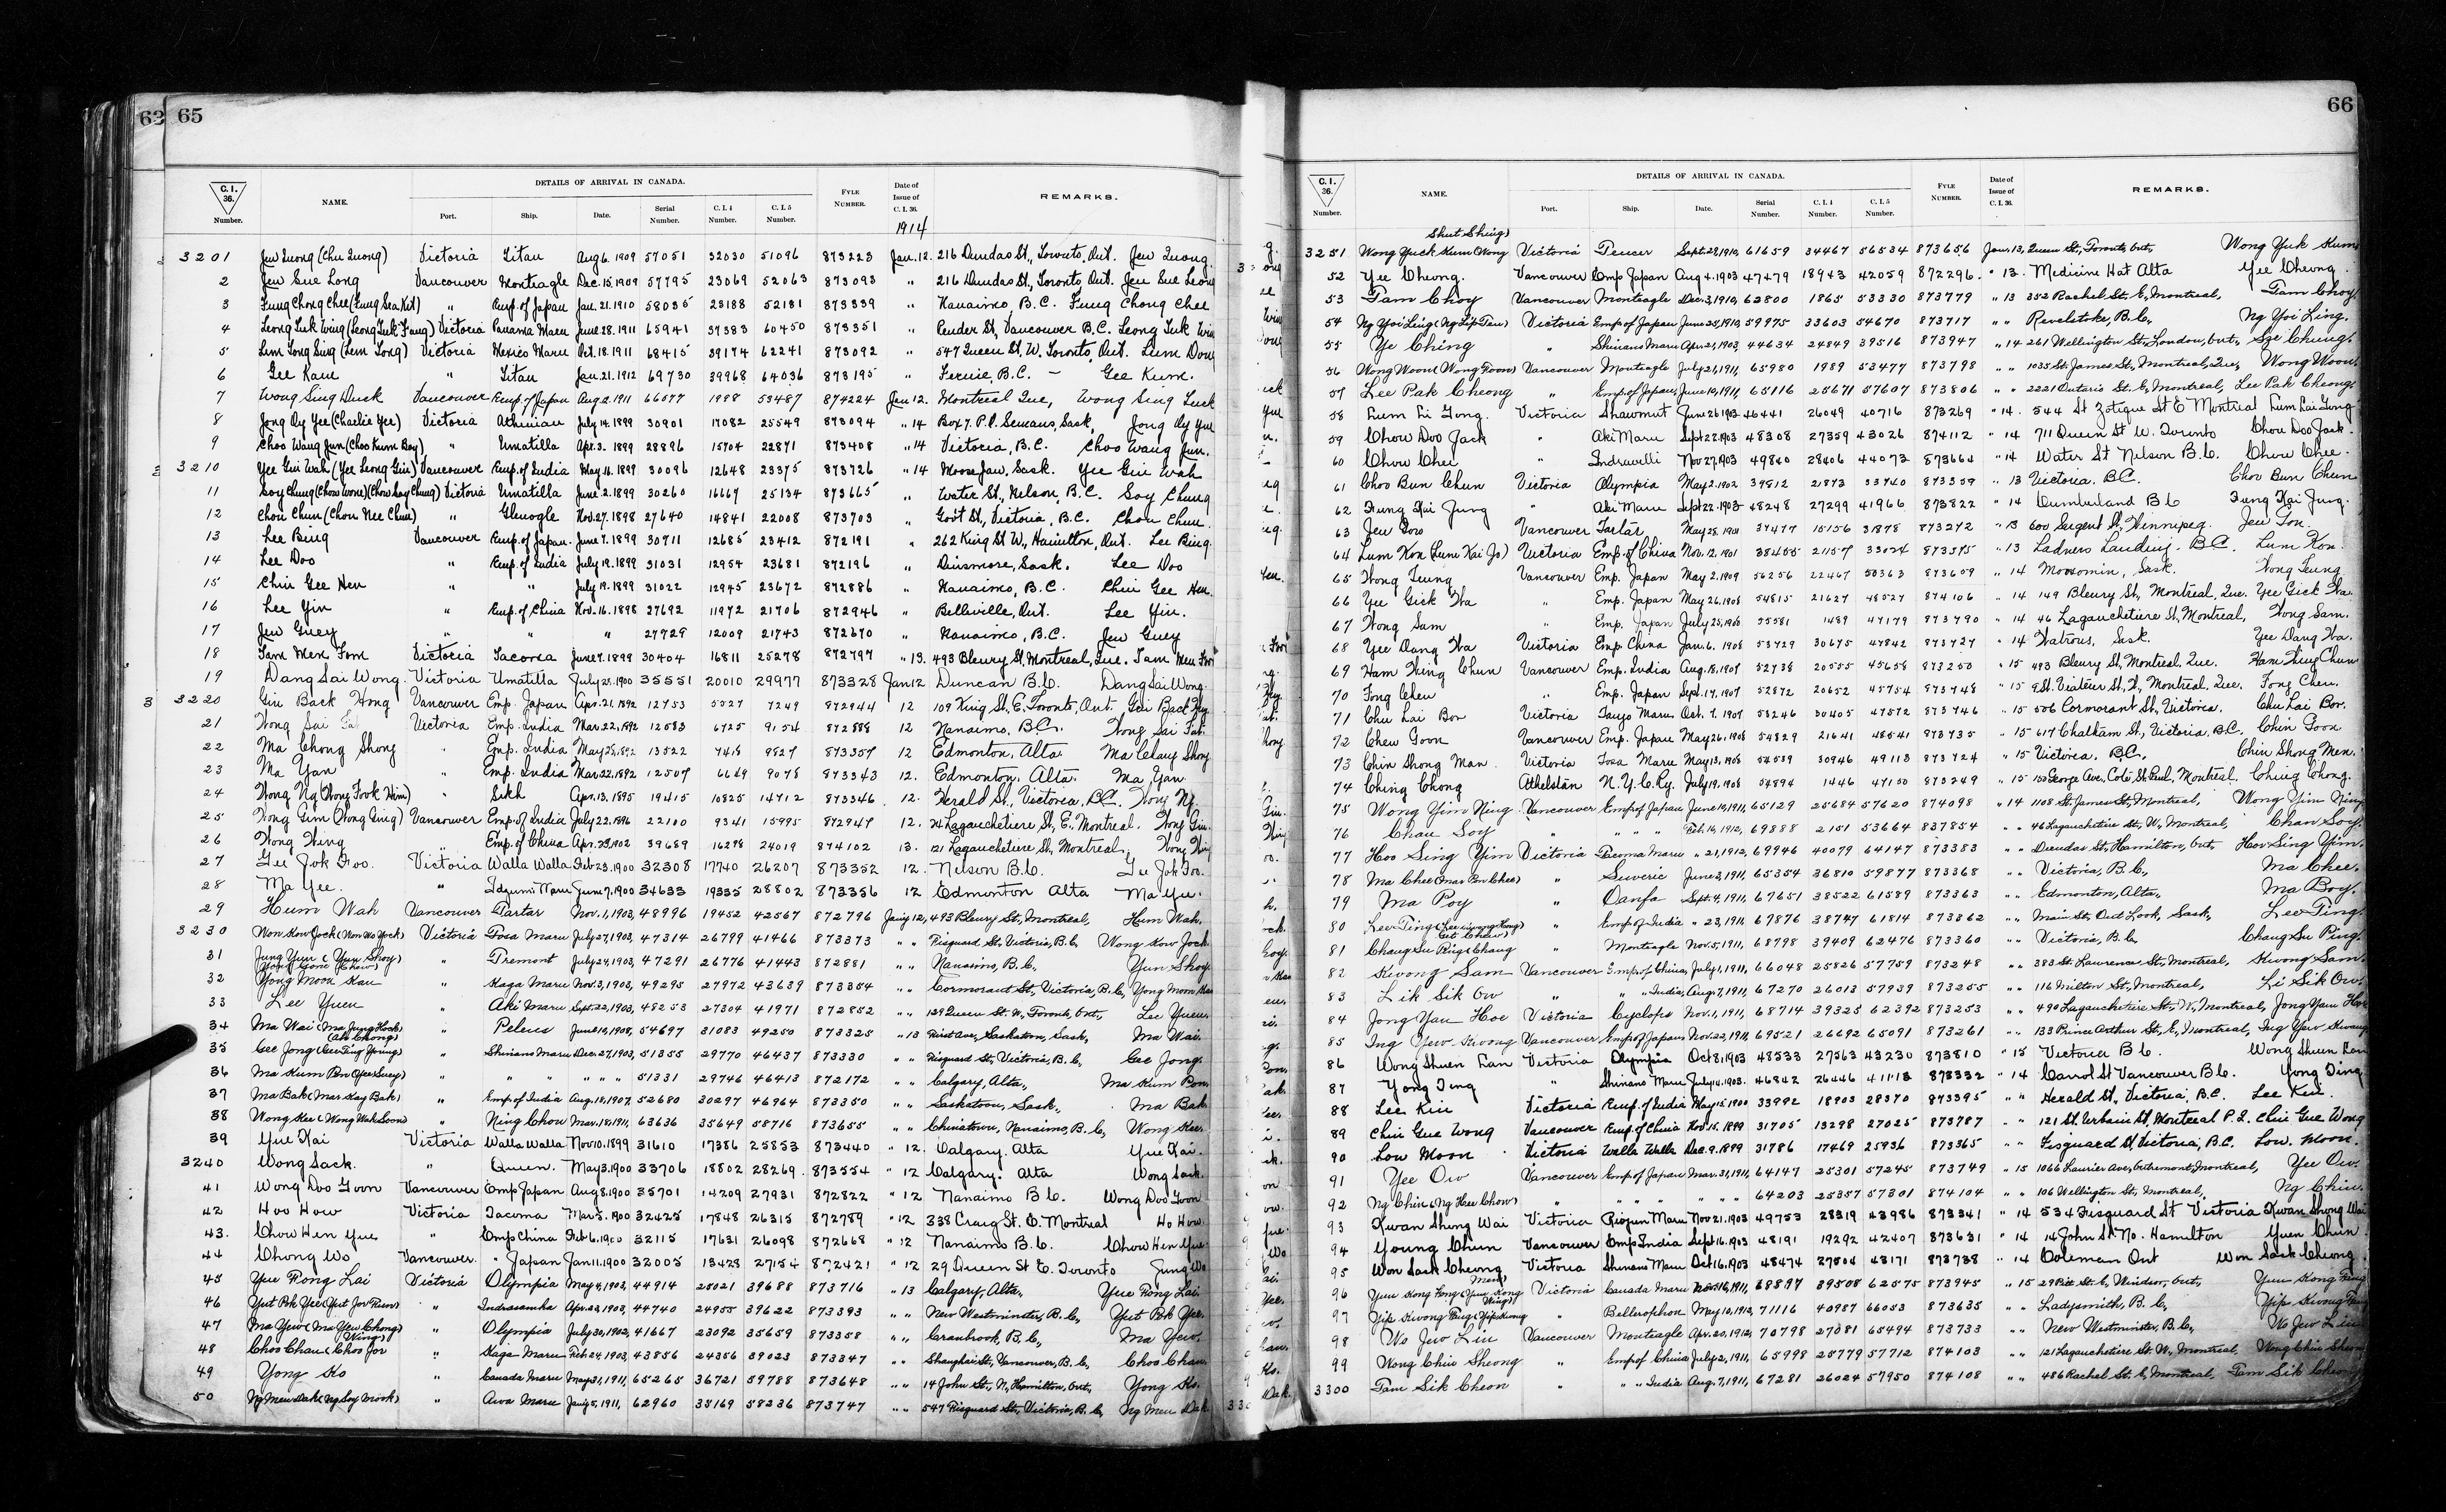 63 65
C.I. 36. Number. NAME. DETAILS OF ARRIVAL IN CANADA. Port. Ship. Date. Serial Number. C.I.4 Number. C.I.5 Number. FYLE NUMBER. Date of Issue of C.I.36. REMARKS.
1914
3201 Jew Quong (Chu Quong) Victoria Titan Aug 6. 1909 57051 32030 51096 873223 Jan. 12. 216 Dundas St., Toronto, Ont. Jew Quong.
2 Jew Sue Long Vancouver Monteagle Dec. 15, 1909 57795 23069 52063 873093 " 216 Dundas St., Toronto, Ont. Jew Sue Long
3 Fung Chong Chee (Fung Sea Kit) " Emp. of Japan Jan. 21. 1910 58035 23188 52181 873339 " Nanaimo, B.C. Fung Chong Chee
4 Leong Tuk Wing (Leong Tuk Fang) Victoria Panama Maru June 28. 1911 65941 37383 60450 873351 " Pender St, Vancouver B.C. Leong Tuk Win
5 Lum Tong Sing (Lem Tong) Victoria Mexico Maru Oct. 18. 1911 68415 39174 62241 873092 " 547 Queen St, W. Toronto, Ont. Lum Dow
6 Gee Kam " Titan Jan. 21. 1912 69730 39968 64036 873195 " Fernie, B.C. – Gee Kum.
7 Wong Sing Duck Vancouver Emp. of Japan Aug. 2. 1911 66577 1998 53487 874224 Jan 12. Montreal Que, Wong Sing Luck
8 Jong Oy Yee (Charlie Yee) Victoria Athenian July 14. 1899 30901 17082 25549 873094 " 14 Box 7. P.O. Semans, Sask, Jong Oy Yee
9 Choo Wang Jun (Choo Kum Boy) " Umatilla Apr. 3. 1899 28896 15704 22871 873408 " 14 Victoria, B.C. Choo Wang Jun.
3210 Yee Gin Wah (Yee Leong Gin) Vancouver Emp. of India May 16. 1899 30096 12648 23375 873726 " 14 Moose Jaw, Sask. Yee Gin Wah
11 Soy Chung (Chow Wone) (Chow Soy Chung) Victoria Umatilla June 2. 1899 30260 16667 25134 873665 " Water St., Nelson, B.C. Soy Chung
12 Chou Chun (Chou Nee Chun) " Glenogle Nov. 27. 1898 27640 14841 22008 873703 " Gov't St., Victoria, B.C. Chou Chun.
13 Lee Bing Vancouver Emp. of Japan. June 7. 1899 30711 12685 23412 872191 " 262 King St W., Hamilton, Ont. Lee Bing.
14 Lee Doo " Emp. of India July 19. 1899 31031 12954 23681 872196 " Dinsmore, Sask. Lee Doo
15 Chin Gee Hen " " July 19. 1899 31022 12945 23672 872886 " Nanaimo, B.C. Chin Gee Hen.
16 Lee Yin " Emp. of China Nov. 16. 1898 27692 11972 21706 872946 " Belleville, Ont. Lee Yin.
17 Jew Guey " " " 27729 12009 21743 872670 " Nanaimo, B.C. Jew Guey
18 Tam Men Fom Victoria Tacoma June 7. 1899 30404 16811 25278 872797 " 13. 493 Bleury St, Montreal, Que. Tam Men Fom
19 Dang Sai Wong. Victoria Umatilla July 25. 1900 35551 20010 29977 873328 Jan 12 Duncan B.C. Dang Sai Wong.
3220 Gin Back Hong Vancouver Emp. Japan Apr. 21. 1892 12753 5527 7249 872944 12 109 King St, E. Toronto, Ont. Gin Back Hg
21 Wong Sai Victoria Emp. India Mar. 22, 1892 12583 6725 9154 872888 12 Nanaimo, B.C. Wong Sai Tat.
22 Ma Chong Shong " Emp. India May 25, 1892 13522 7418 9827 873357 12 Edmonton, Alta. Ma Chong Shong
23 Ma Yan " Emp. India Mar. 22. 1892 12507 6649 9078 873343 12. Edmonton, Alta. Ma Yan.
24 Wong Ng (Wong Fook Him) " Sikh Apr. 13. 1895 19415 10825 14712 873346 12. Herald St., Victoria, B.C. Wong Ng.
25 Wong Gim (Wong Ging) Vancouver Emp. of India July 22. 1896 22100 9341 15995 872947 12. Lagauchetiere St, E., Montreal. Wong Gim.
26 Wong Wing " Emp. of China Apr. 23. 1902 39689 16278 24019 874102 13. 121 Lagauchetiere St, Montreal, Wong Wing
27 Gee Jok Foo. Victoria Walla Walla Feb 23. 1900 32308 17740 26207 873352 12. Nelson B.C. Gee Jok Foo.
28 Ma Yee. " Idzumi Maru June 7. 1900 34633 19335 28802 873356 12 Edmonton Alta Ma Yee.
29 Hum Wah Vancouver Tartar Nov. 1, 1903, 48996 19452 42567 872796 Jan'y 12, 493 Bleury St., Montreal, Hum Wah.
3230 Won Kow Jock (Won Wo Yock) Victoria Tosa Maru July 27, 1903, 47314 26799 41466 873373 " " Fisguard St, Victoria, B.C. Wong Kow Jock.
31 Jung Yun (Yun Shoy) " Tremont July 24, 1903, 47291 26776 41443 872881 " " Nanaimo, B.C., Yun Shoy.
32 Yong Moon Kau (Yong Gone Chow) " Kaga Maru Nov. 3, 1903, 49295 27972 43639 873354 " " Cormorant St., Victoria, B.C, Yong Moon Kau
33 Lee Yuen " Aki Maru Sept. 22, 1903, 48253 27304 41971 872852 " " 129 Queen St. W., Toronto, Ont., Lee Yuen.
34 Ma Wai (Ma Jung Hock) (Ah Chong) " Peleus June 19, 1908, 54697 31083 49250 873325 " 13 First Ave., Saskatoon, Sask, Ma Wai.
35 Gee Jong (Gee Ting Young) " Shinano Maru Dec. 27, 1903, 51355 29770 46437 873330 " " Fisguard St., Victoria, B.C, Gee Jong.
36 Ma Kum Pon (Yee Suey) " " " " " 51331 29746 46413 872172 " " Calgary, Alta., Ma Kum Pon.
37 Ma Bak (Mar Kay Bak) " Emp. of India Aug. 18, 1907, 52680 30297 46964 873350 " " Saskatoon, Sask., Ma Bak
38 Wong Kee (Wong Wah Soon) " Ning Chow Mar. 18, 1911, 63636 35649 58716 873655 " " Chinatown, Nanaimo, B.C, Wong Kee.
39 Yue Kai Victoria Walla Walla Nov 10. 1899 31610 17386 25853 873440 " 12. Calgary. Alta Yue Kai.
3240 Wong Sack. " Queen. May 3. 1900 33706 18802 28269. 873554 " 12 Calgary. Alta Wong Sack.
41 Wong Doo Goon Vancouver Emp Japan Aug 8. 1900 35701 14209 27931 872822 " 12 Nanaimo B.C. Wong Doo Goon
42 Hoo How Victoria Tacoma Mar 5. 1900 32425 17848 26315 872789 " 12 338 Craig St. E. Montreal Ho How.
43. Chow Hen Yue " Emp China Feb 6. 1900 32115 17631 26098 872668 " 12 Nanaimo B.C. Chow Hen Yue.
44 Chong Wo Vancouver. " Japan Jan 11. 1900 32005 13428 27154 872421 " 12 29 Queen St E. Toronto Jung Wo
45 Yue Pong Lai Victoria Olympia May 4, 1903, 44914 25021 39688 873716 " 13 Calgary, Alta., Yue Pong Lai.
46 Yut Pok Yee (Yut Jor Kum) " Indrasamha Apr. 23, 1903, 44740 24955 39622 873393 " " New Westminster, B.C, Yut Pok Yee.
47 Ma Yew (Ma Yew Chong) " Olympia July 30, 1902, 41667 23092 35659 873358 " " Cranbrook, B.C, Ma Yew.
48 Choo Chau (Choo Jor Wing) " Kaga Maru Feb. 24, 1903, 43856 24356 39023 873347 " " Shanghai St, Vancouver, B.C, Choo Chau.
49 Yong Ko " Canada Maru May 31, 1911, 65265 36721 59788 873648 " " 14 John St., N., Hamilton, Ont., Yong Ko.
50 Ng Men Dak (Ng Soy Mook) " Awa Maru Jan'y 5, 1911, 62960 35169 58236 873747 " " 547 Fisguard St., Victoria, B.C, Ng Men Dak.
66
C.I. 36. Number. NAME. DETAILS OF ARRIVAL IN CANADA. Port. Ship. Date. Serial Number. C.I.4 Number. C.I.5 Number. FYLE NUMBER. Date of Issue of C.I.36. REMARKS.
Shut Shing)
3251 Wong Yuck Kum (Wong Victoria Teucer Sept. 29, 1910, 61659 34467 56534 873656 Jan. 13, Queen St., Toronto, Ont., Wong Yuk Kum
52 Yee Cheong. Vancouver Emp Japan Aug 4. 1903 47479 18943 42059 872296. " 13. Medicine Hat Alta Yee Cheong.
53 Tam Choy Vancouver Monteagle Dec. 3, 1910, 62800 1865 53330 873779 " 13 352 Rachel St. E, Montreal, Tam Choy.
54 Ng Yoi Ling (Ng Sip Tau) Victoria Emp. of Japan June 25, 1910, 59975 33603 54670 873717 " " Revelstoke, B.C, Ng Yoi Ling.
55 Ye Ching " Shinano Maru Apr. 21, 1903, 44634 24849 39516 873947 " 14 261 Wellington St., London, Ont., Sze Chung.
56 Wong Woon (Wong Foon) Vancouver Monteagle July 21, 1911, 65980 1989 53477 873798 " " 1035 St. James St., Montreal, Que, Wong Woon.
57 Lee Pak Cheong " Emp. of Japan, June 19, 1911, 65116 25671 57607 873806 " " 2221 Ontario St. E, Montreal, Lee Pak Cheong.
58 Lum Li Gong. Victoria Shawmut June 26 1903 46441 26049 40716 873269 " 14. 544 St Zotique St E Montreal Lum Lai Gong
59 Chow Doo Jack " Aki Maru Sept 22. 1903 48308 27359 43026 874112 " 14 711 Queen St W. Toronto Chou Doo Jack.
60 Chow Chee " Indravelli Nov 27, 1903 49840 28406 44073 873664 " 14 Water St Nelson B.C. Chow Chee.
61 Choo Bun Chun Victoria Olympia May 2. 1902 39812 2873 33740 873359 " 13 Victoria. B.C. Choo Bun Chun
62 Fung Kai Jung " Aki Maru Sept 22. 1903 48248 27299 41966 873822 " 14 Cumberland B C Fung Kai Jung.
63 Jew Foo Vancouver Tartar May 28. 1901 37477 15156 31878 873272 " 13 600 Sargent St, Winnipeg. Jew Foo.
64 Lum Kon (Lum Kai Jo) Victoria Emp. of China Nov. 12. 1901 38455 21157 33024 873595 " 13 Ladners Landing. B.C. Lum Kon.
65 Wong Leung Vancouver Emp. Japan May 2. 1909 56256 22467 50363 873609 " 14 Moosomin, Sask. Wong Leung.
66 Yee Gick Wa " Emp. Japan May 26, 1908 54815 21627 48527 874106 " 14 149 Bleury St, Montreal, Que. Yee Gick Wa.
67 Wong Sam " Emp. Japan July 25, 1908 55581 1489 47179 873790 " 14 46 Lagauchetiere St, Montreal, Wong Sam.
68 Yee Dang Wa Victoria Emp. China Jan. 6. 1908 53729 30675 47842 873727 " 14 Watrous, Sask. Yee Dang Wa.
69 Ham Wing Chun Vancouver Emp. India Aug. 18, 1907 52738 20555 45658 873250 " 15 493 Bleury St, Montreal, Que. Ham Wing Chun
70 Fong Chew " Emp. Japan Sept. 17, 1907 52872 20652 45754 873748 " 15 9 St. Viateur St, W, Montreal, Que. Fong Chew.
71 Chu Lai Bor Victoria Tango Maru Oct. 7. 1907 53246 30405 47572 873746 " 15 506 Cormorant St, Victoria. Chu Lai Bor.
72 Chew Goon Vancouver Emp. Japan May 26, 1908 54829 21641 48541 873735 " 15 617 Chatham St, Victoria, B.C. Chin Goon
73 Chin Shong Man Victoria Tosa Maru May 13, 1908 54539 30946 49113 873724 " 15 Victoria. B.C. Chin Shong Men.
74 Ching Chong Athelstan N.Y.C.Ry. July 19, 1908 54894 1446 47150 873249 " 15 George Ave, Cote St. Paul, Montreal. Ching Chong.
75 Wong Yim Ning Vancouver Emp. of Japan June 19, 1911, 65129 25684 57620 874098 " 14 1108 St. James St., Montreal, Wong Yim Ning
76 Chau Soy " " " " Feb. 14, 1912, 69888 2151 53664 837854 " " 46 Lagauchetiere St., W., Montreal, Chau Soy.
77 Hoo Sing Yim Victoria Tacoma Maru " 21, 1912, 69946 40079 64147 873383 " " Dundas St., Hamilton, Ont., Hoo Sing Yim.
78 Ma Chee (Mar Bn Chee) " Suveric June 2, 1911, 65354 36810 59877 873368 " " Victoria, B.C, Ma Chee.
79 Ma Poy " Oanfa Sept. 4, 1911, 67651 38522 61589 873363 " " Edmonton, Alta., Ma Boy.
80 Lee Ting (Lee Wong Hong) " Emp. of India " 23, 1911, 67876 38747 61814 873862 " " Main St., Out Look, Sask, Lee Ting.
81 Chang Su Ping (Chang Get Chew) " Monteagle Nov. 5, 1911, 68798 39409 62476 873360 " " Victoria, B.C, Chang Su Ping.
82 Kwong Sam Vancouver Emp. of China, July 1, 1911, 66048 25826 57759 873248 " " 383 St. Lawrence St., Montreal, Kwong Sam.
83 Lik Sik Ow " " " India, Aug. 7, 1911, 67270 26013 57939 873255 " " 116 Milton St., Montreal, Li Sik Ow.
84 Jong Yau Hoe Victoria Cyclops Nov. 1, 1911, 68714 39325 62392 873253 " " 490 Lagauchetiere St., W., Montreal, Jong Yau Hoe
85 Ing Yew Kwong Vancouver Emp. of Japan Nov. 22, 1911, 69521 26692 65091 873261 " " 133 Prince Arthur St., E, Montreal, Ing Yew Kwong
86 Wong Shuen Lan Victoria Olympia Oct 8. 1903 48533 27563 43230 873810 " 15 Victoria B.C. Wong Shuen Lan
87 Yong Ting " Shinano Maru July 14, 1903. 46842 26446 41113 873332 " 14 Carrol St Vancouver B.C. Yong Ting.
88 Lee Kin Victoria Emp. of India May 15. 1900 33992 18903 28370 873395 " " Herald St., Victoria, B.C. Lee Kin.
89 Chin Gue Wong Vancouver Emp. of China Nov. 15. 1899 31705 13298 27025 873787 " " 121 St. Urbain St, Montreal P.Q. Chin Gue Wong
90 Low Moon Victoria Walla Walla Dec. 9. 1899 31786 17469 25936 873365 " " Fisguard St, Victoria, B.C. Low Moon.
91 Yee Ow Vancouver Emp. of Japan Mar. 31, 1911, 64147 25301 57245 873749 " 15 1066 Laurier Ave, Outremont, Montreal, Yee Ow.
92 Ng Chin (Ng Hee Chow) " " " " " " " 64203 25357 57301 874104 " " 106 Wellington St., Montreal, Ng Chin.
93 Kwan Shong Wai Victoria Riojun Maru Nov 21. 1903 49753 28319 43986 873341 " 14 534 Fisguard St Victoria Kwan Shong Wai
94 Young Chun Vancouver Emp India Sept 16. 1903 48191 19292 42407 873631 " 14 14 John St No. Hamilton Yuen Chun
95 Won Sack Cheong Victoria Shinano Maru Oct 16, 1903 48474 27504 43171 873738 " 14 Coleman Ont Won Sack Cheong
96 Yuen Kong Fong (Yuen Kong Men) Victoria Canada Maru Nov. 16, 1911, 68897 39508 62575 873945 " 15 29 Pitt St. E, Windsor, Ont., Yuen Kong Fong
97 Yip Kwong Fing (Yip Kwong Wing) " Bellerophon May 10, 1912, 71116 40987 66053 873635 " " Ladysmith, B.C, Yip Kwong Fing
98 Wo Jew Lin Vancouver Monteagle Apr. 20, 1912, 70798 27081 65494 873733 " " New Westminster, B.C, Wo Jew Lin
99 Wong Chin Sheong " Emp. of China July 2, 1911, 65998 25779 57712 874103 " " 121 Lagauchetiere St. W., Montreal, Wong Chin Sheong
3300 Tam Sik Cheon " " " India Aug. 7, 1911, 67281 26024 57950 874108 " " 486 Rachel St. E, Montreal, Tam Sik Cheon